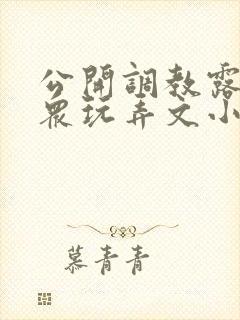 公開調教露
眾玩弄文小
慕青青